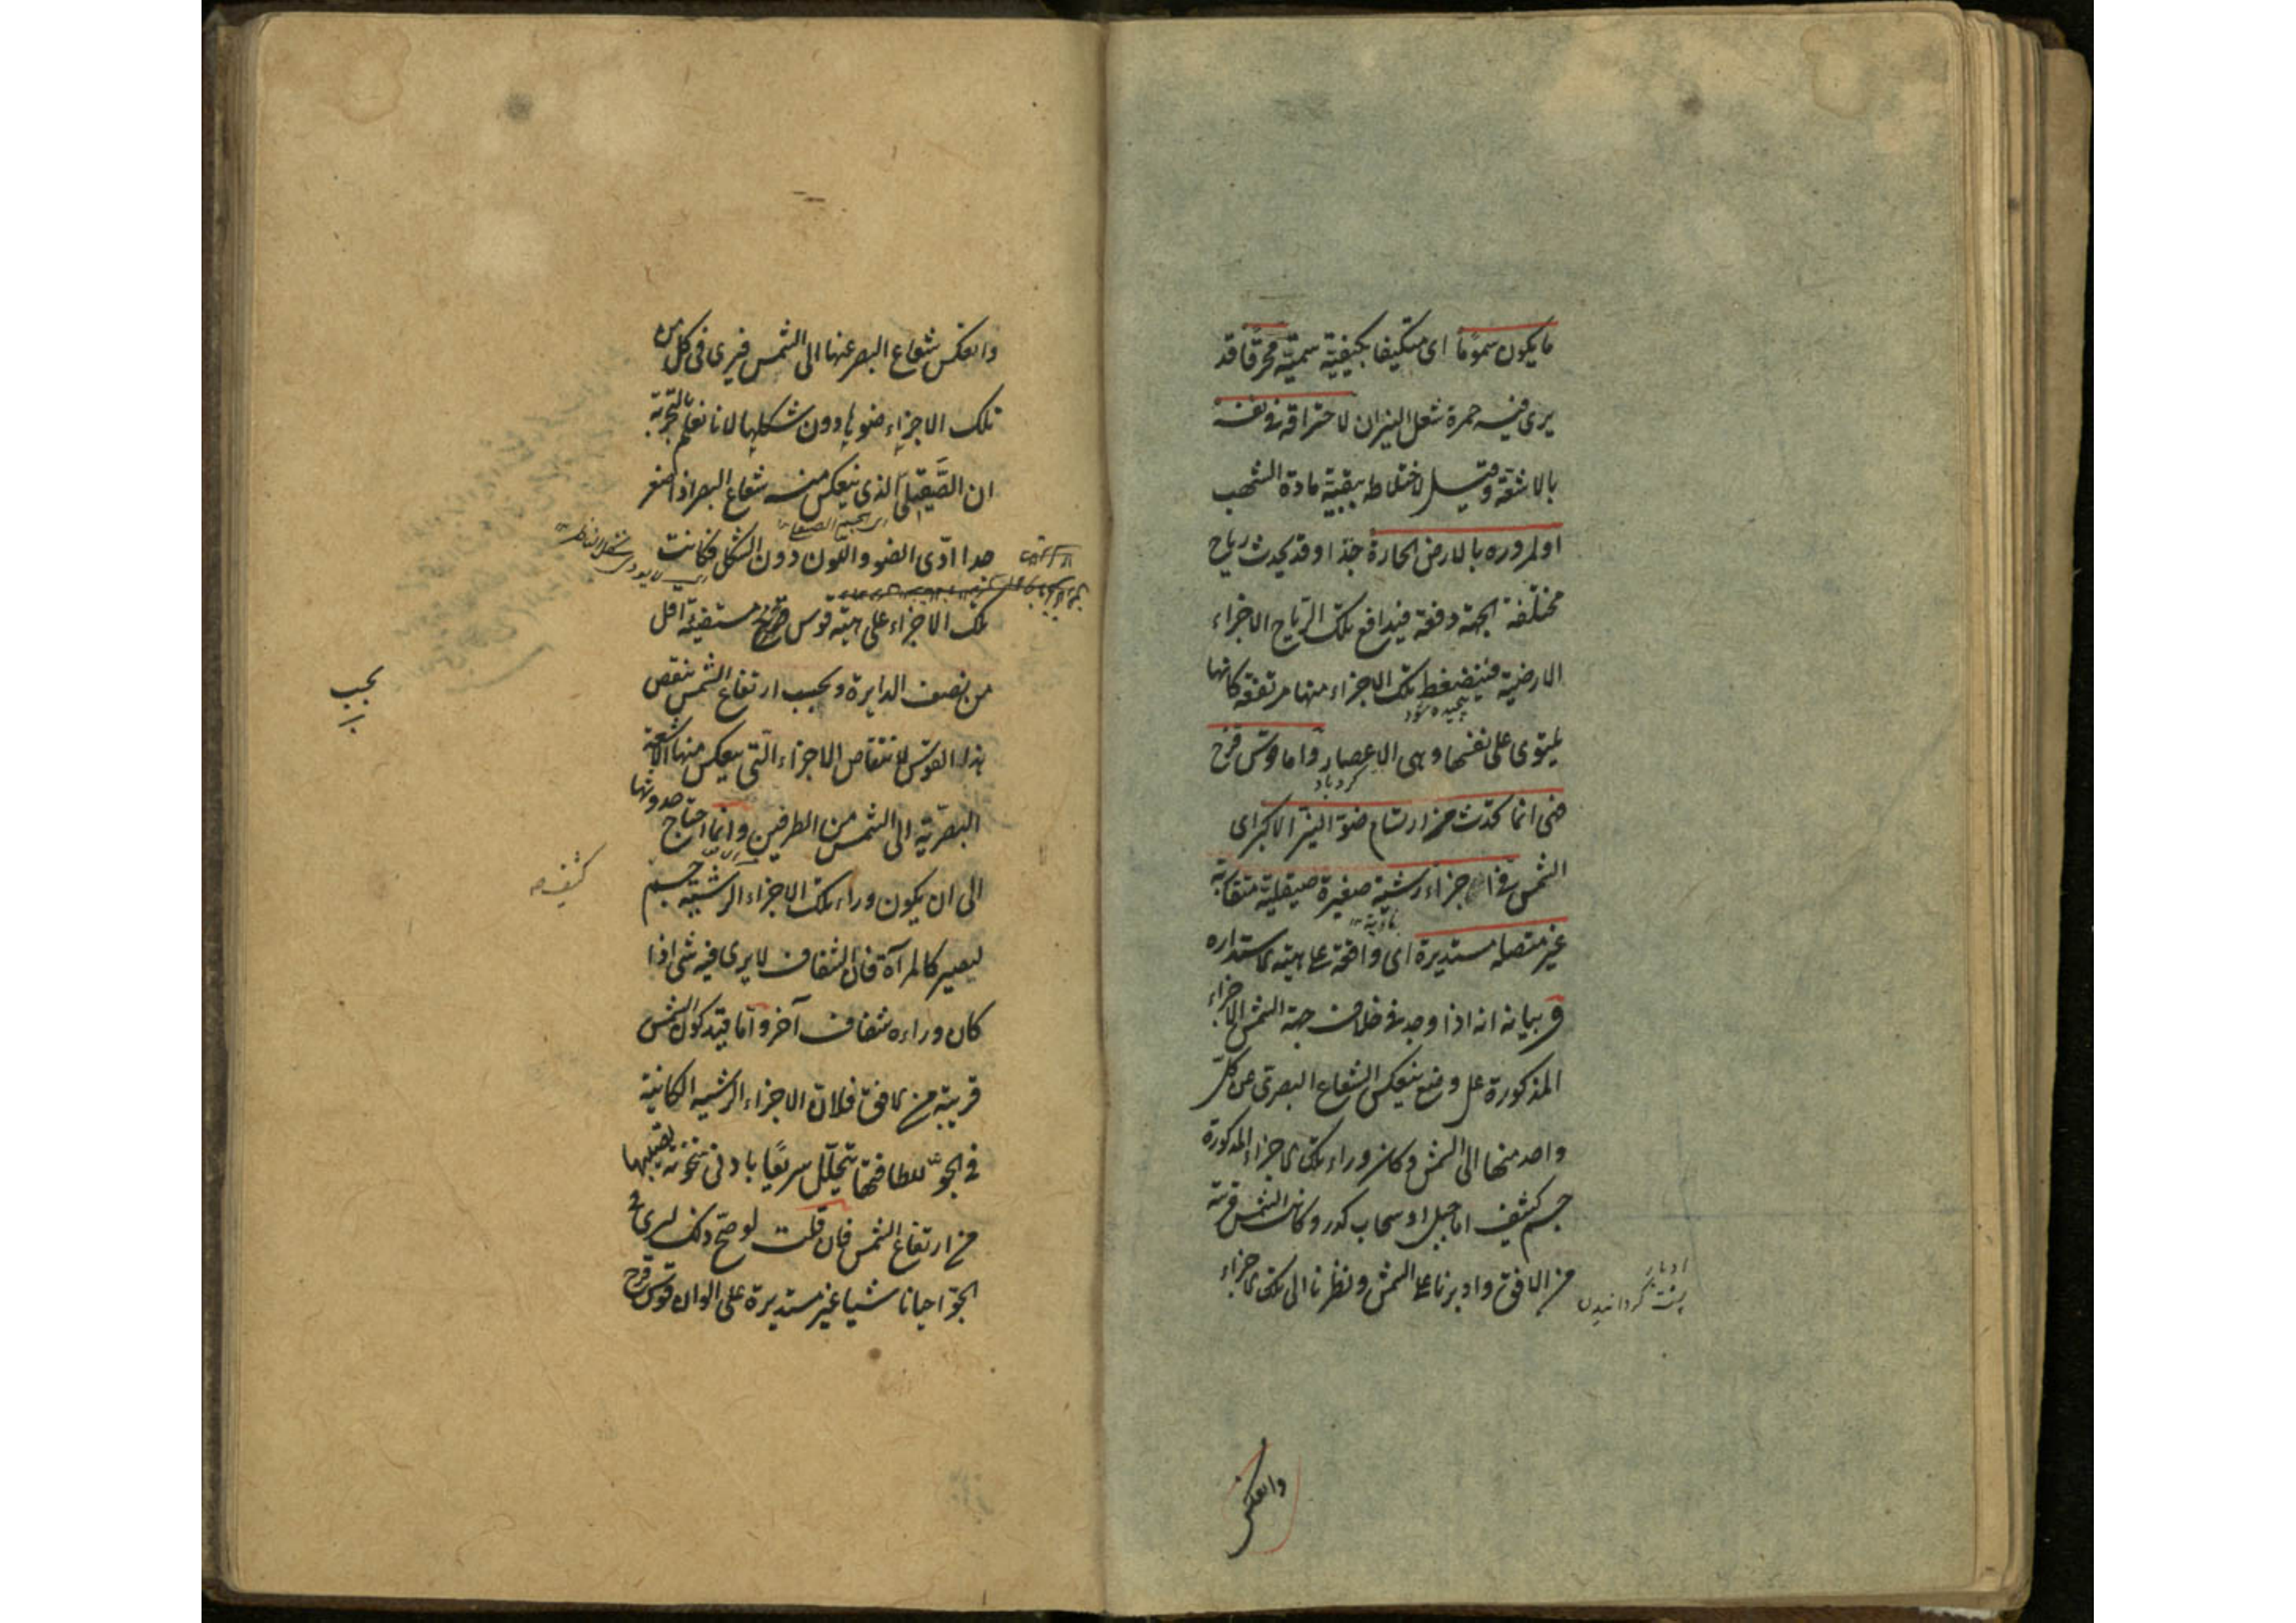 ما يكون سموما اى متكيفا بكيفية سمية محرقا قد
يرى فيه حمرة شعل النيران لاحتراقه فى نفسه
بالاشعة وقيل لاختلاطه ببقية مادة الشهب
او لمروره بالارض الحارة جدا وقد يحدث رياح
مختلفة الجهة دفعة فيدافع تلك الرياح الاجزاء
الارضية فينضغط تلك الاجزاء منها مرتفعة كانها
پیچیده شود
يلتوى على نفسها وهى الاعصار واما قوس قزح
گردباد
فهى انما تحدث من ارتسام ضوء النير الاكبر اى
الشمس فى اجزاء رشية صغيرة صيقلية متقاربة
غير متصلة مستديرة اى واقعة على هيئة الاستدارة
وبيانه انه اذا وجد فى خلاف جهة الشمس الاجزاء
المذكورة على وضع ينعكس الشعاع البصرى عن كل
واحد منها الى الشمس وكان وراء تلك الاجزاء المذكورة
جسم كثيف اما جبل او سحاب كدر وكانت الشمس قريبة
من الافق وادبرنا على الشمس ونظرنا الى تلك الاجزاء
ادبار
پشت گردانیدن
وانعكس
وانعكس شعاع البصر عنها الى الشمس فيرى فى كل من
تلك الاجزاء ضوءها دون شكلها لانا نعلم بالتجربة
ان الصيقلى الذى ينعكس منه شعاع البصر اذا صغر
جدا ادى الضوء واللون دون الشكل فكانت
تلك الاجزاء على هيئة قوس قزح مستضيئة اقل
من نصف الدايرة وبحسب ارتفاع الشمس ينقص
بحسب
هذا القوس لانتقاص الاجزاء التى ينعكس منها الاشعة
البصرية الى الشمس من الطرفين وانما احتاج حدوثها
الى ان يكون وراء تلك الاجزاء الرشية جسم
كثيف صح
ليصير كالمرآة فان الشفاف لا يرى فيه شى اذا
كان وراءه شفاف آخر واما قيد كون الشمس
قريبة من الافق فلان الاجزاء الرشية الكائنة
فى الجو للطافتها يتحلل سريعا بادنى سخونة تصيبها
من ارتفاع الشمس فان قلت لو صح ذلك لم يرى فى
الجو احيانا شيا غير مستديرة على الوان قوس قزح